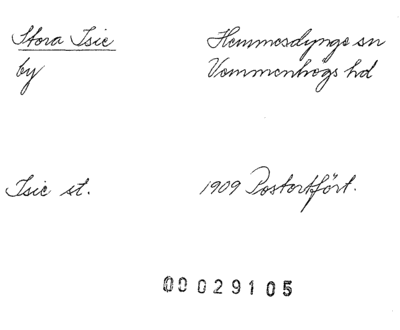 Stora Isie Hemmesdynge sn
by Vemmenhögs hd
Isie st. 1909 Postortfört.
00029105